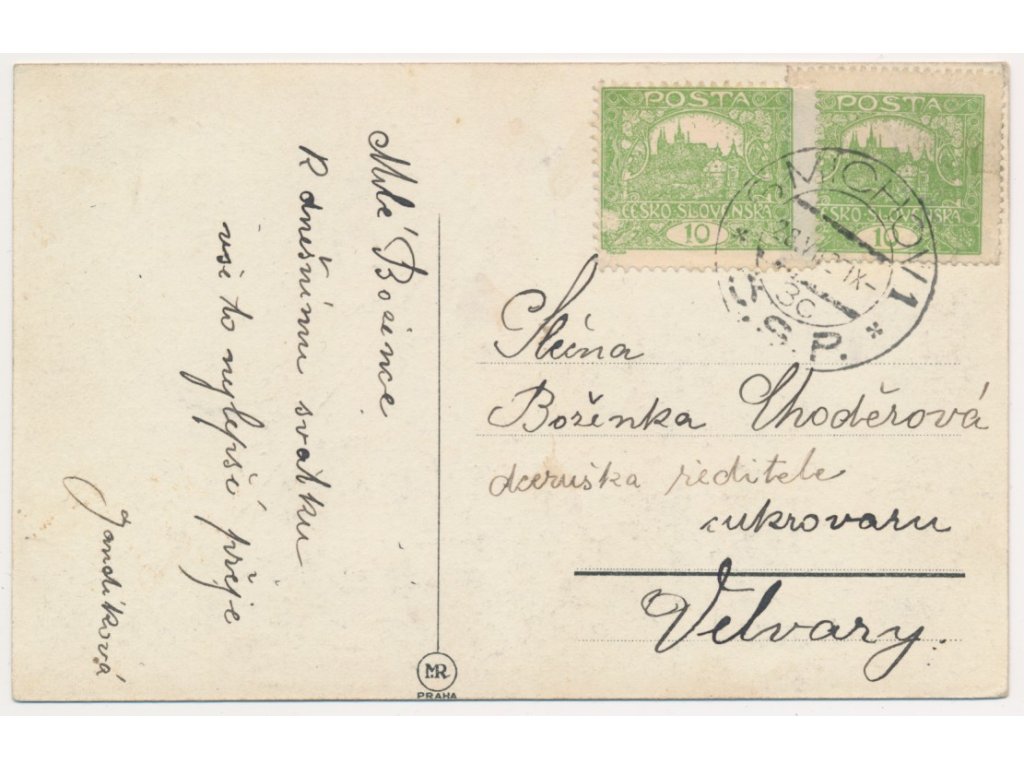 Milé Božence
K dnešnímu svátku
vše to nejlepší přeje
Jandíková
POSTA
ČESKO-SLOVENSKÁ
10
POSTA
ČESKO-SLOVENSKÁ
10
SMÍCHOV 1
3c
Slečna
Boženka Choděrová
dceruška ředitele
cukrovaru
Velvary.
MR
PRAHA